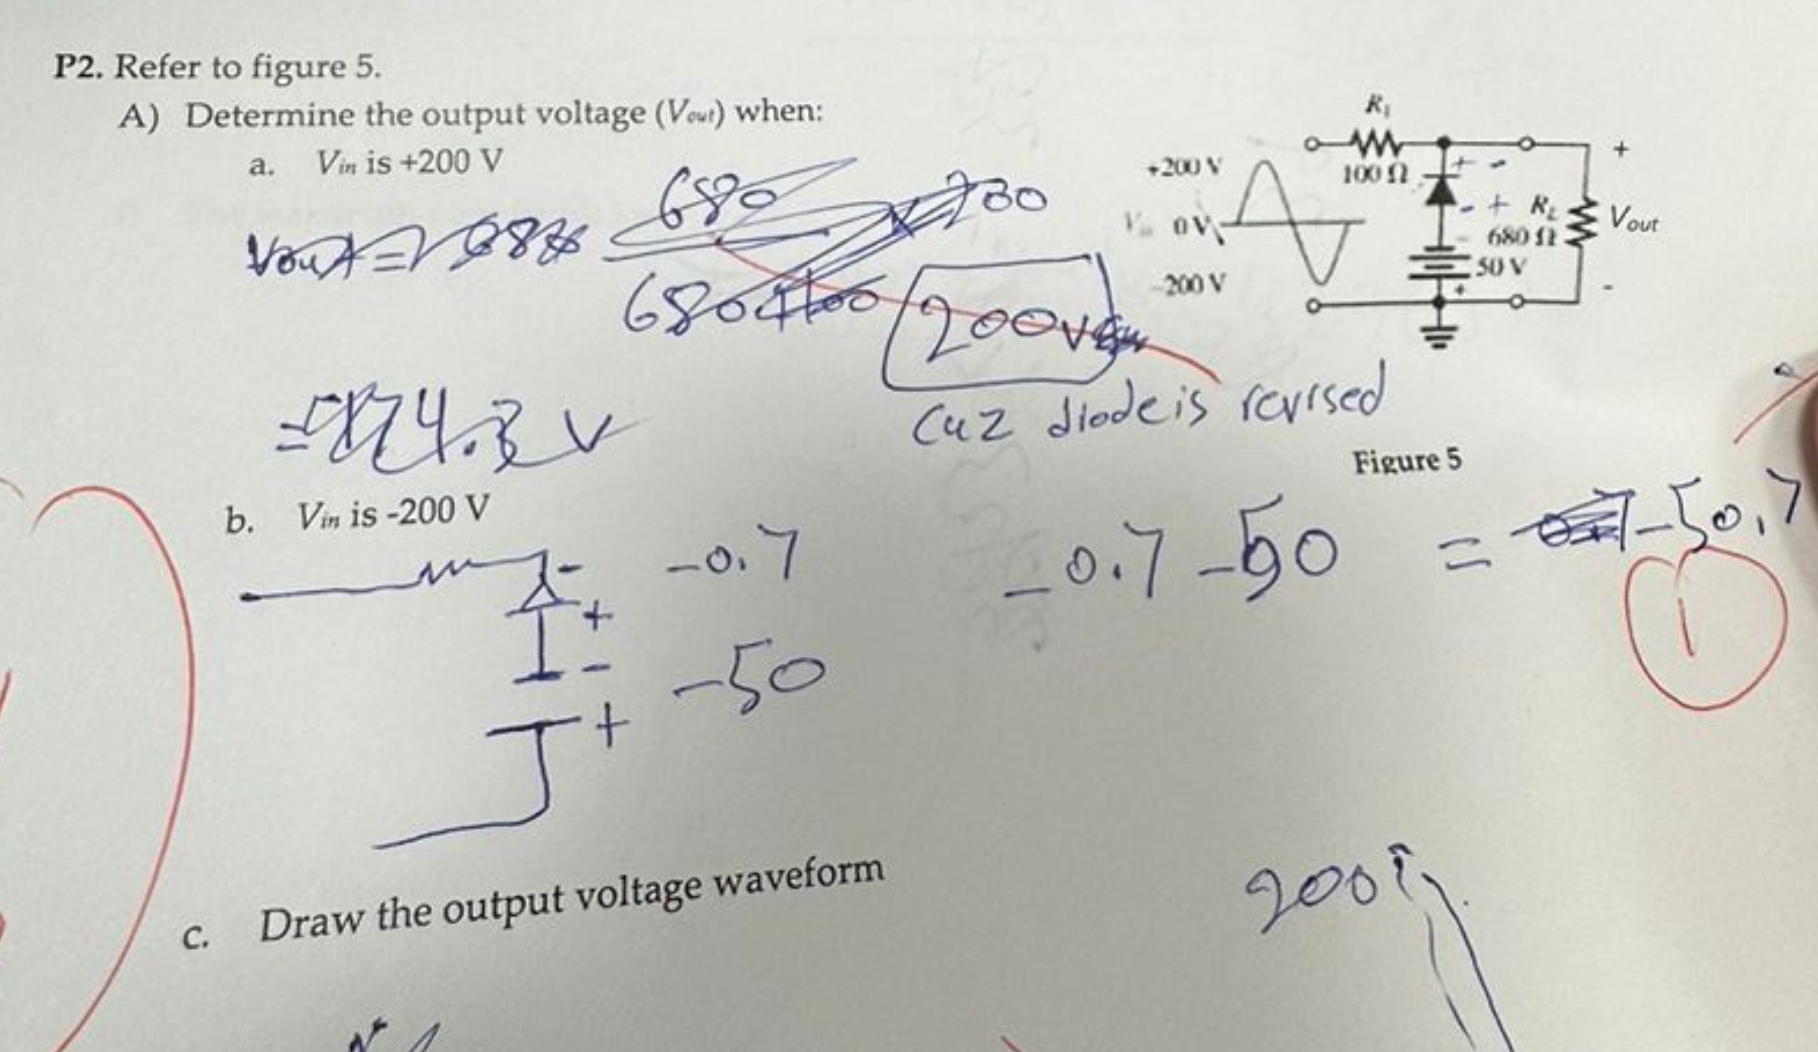 P2. Refer to figure 5.
A) Determine the output voltage (Vout) when:
a. Vin is +200 V
680
Vout =
680+100
200V
= 174.3 V
cuz diode is revised
R1
100 Ω
+200 V
0 V
-200 V
+ -
- +
RL
680 Ω
50 V
+
+
Vout
-
Figure 5
b. Vin is -200 V
- -0.7
+
- -50
+
-0.7 -50 = -50.7
1
c. Draw the output voltage waveform
200